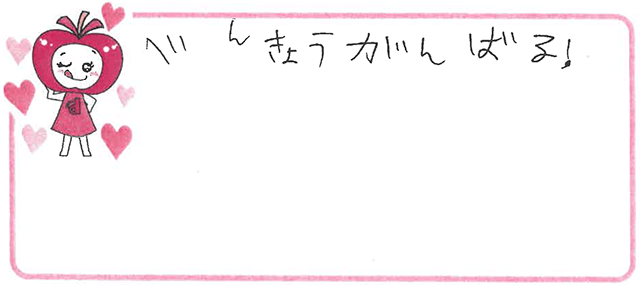 べんきょうがんばる!